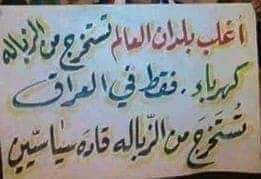 أغلب بلدان العالم تستخرج من الزباله
كهرباء . فقط في العراق
تُستخرجَ من الزّباله قادَه سياسيين